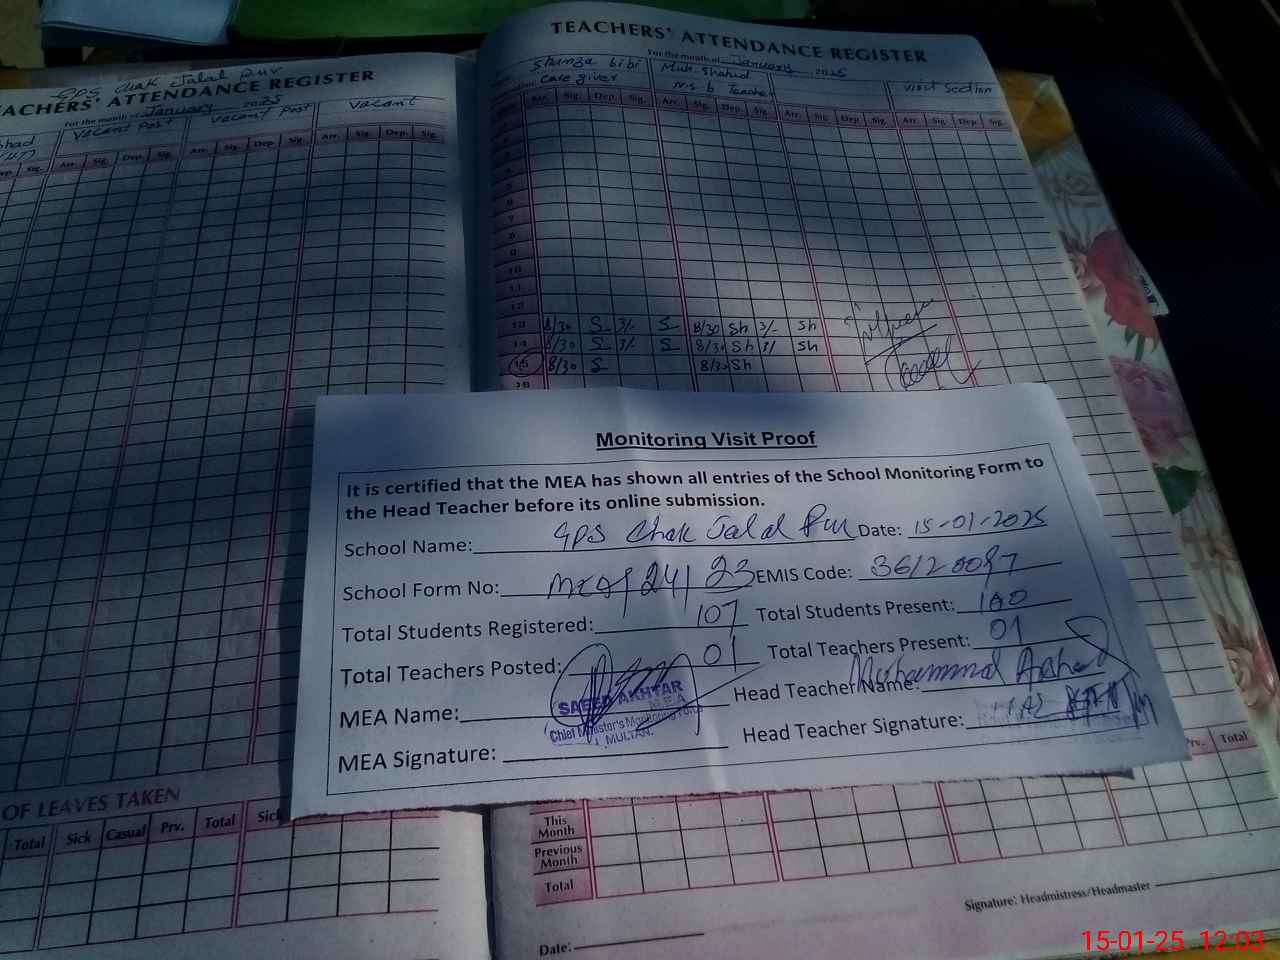 GPS Chak Jalal Pur
TEACHERS' ATTENDANCE REGISTER
For the month of January 2025
Vacant Post Vacant Post Vacant
Arr. Sig. Dep. Sig. Arr. Sig. Dep. Sig. Arr. Sig. Dep. Sig.
OF LEAVES TAKEN
Total Sick Casual Prv. Total Sick
TEACHERS' ATTENDANCE REGISTER
For the month of January 2025
Shunza bibi Muh. Shahid
Care giver N.S.b Teacher Visit Section
Arr. Sig. Dep. Sig. Arr. Sig. Dep. Sig. Arr. Sig. Dep. Sig. Arr. Sig. Dep. Sig.
4
5
6
7
8
9
10
11
12
13 8/30 S 3/- S 8/30 Sh 3/- Sh
14 8/30 S 3/- S 8/30 Sh 3/ Sh
15 8/30 S 8/30 Sh
16
Monitoring Visit Proof
It is certified that the MEA has shown all entries of the School Monitoring Form to
the Head Teacher before its online submission.
School Name: GPS Chak Jalal Pur Date: 15-01-2025
School Form No: 24/23 EMIS Code: 36120087
Total Students Registered: 107 Total Students Present: 100
Total Teachers Posted: 01 Total Teachers Present: 01
MEA Name: SAEED AKHTAR Head Teacher Name: Muhammad Arshad
MEA
Chief Minister's Monitoring Force
MULTAN.
MEA Signature: Head Teacher Signature:
Prv. Total
This Month
Previous Month
Total
Signature: Headmistress/Headmaster
Date:
15-01-25 12:03